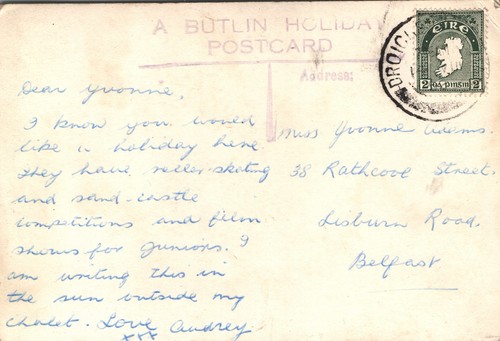 A BUTLIN HOLIDAY
POSTCARD
Address:
EIRE
2
2
Dear Yvonne,
I know you would
like a holiday here
They have roller-skating
and sand-castle
competitions and film
shows for juniors. I
am writing this in
the sun outside my
chalet. Love Audrey.
xxx
Miss Yvonne Adams.
38 Rathcove Street.
Lisburn Road.
Belfast